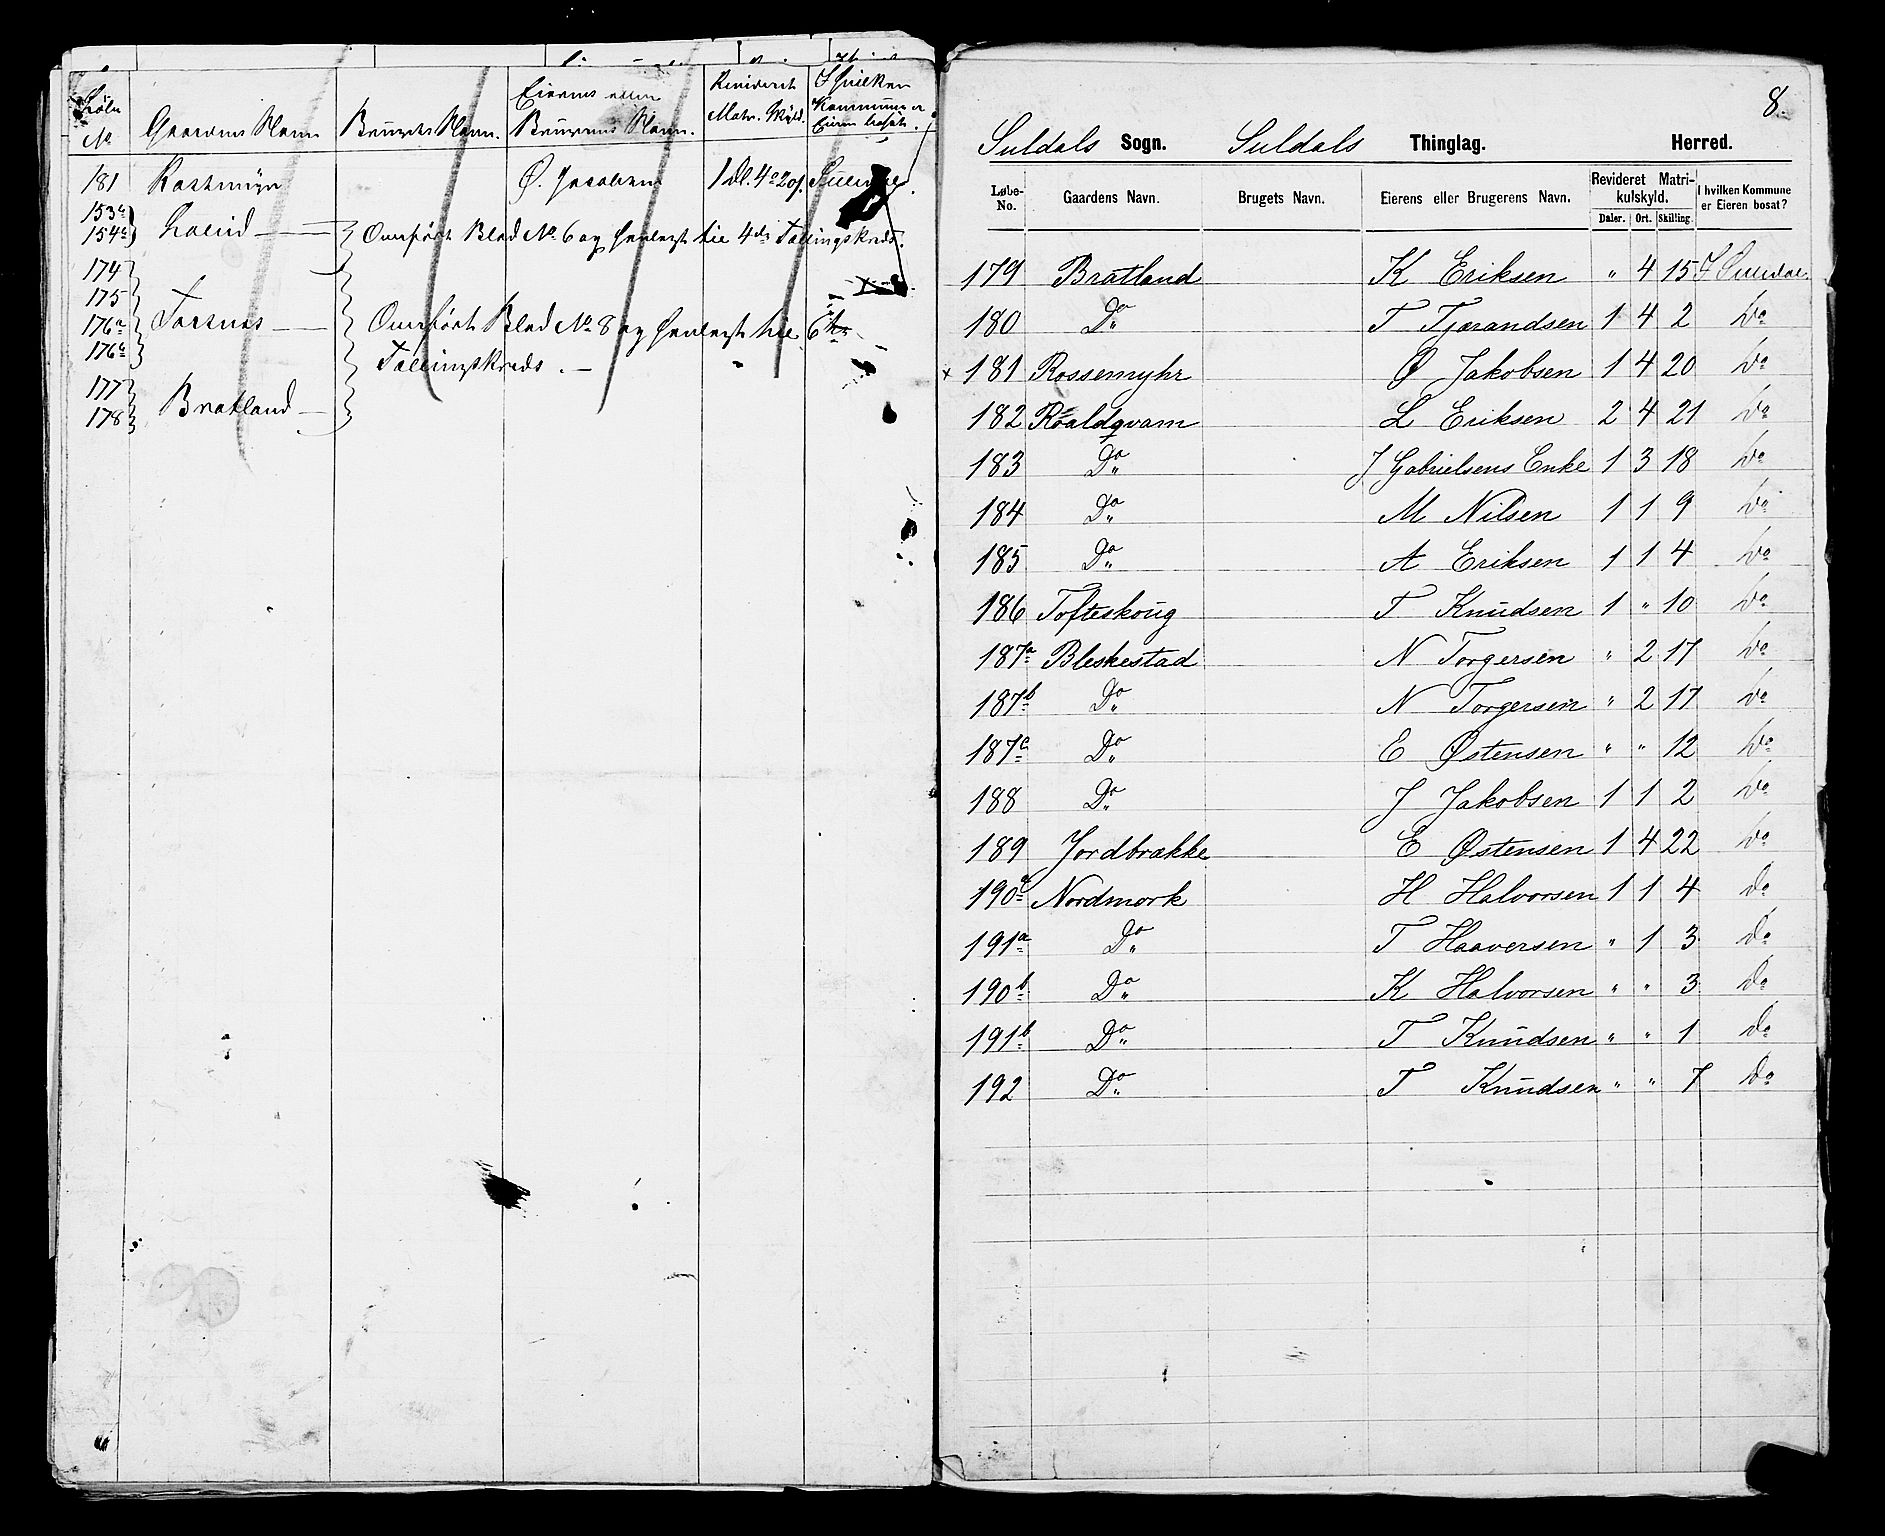 Løbe No Gaardens Navn Brugets Navn. Eierens eller Brugerens Navn. Revideret Matr. Skyld. I hvilken Kommune er Eieren bosat.
181 Rossemyr Ø. Jacobsen 1 dl. 4 o 20 s. Suledal.
153c
154c
174
Overført Blad No 6 og henlegt til 4de Tællingskreds.
175
176a
176c
Overført Blad No 8 og henlegt til 6te
Tællingskreds.
177
178 Bratland
8.
Suldals Sogn. Suldals Thinglag. Herred.
Løbe-No. Gaardens Navn. Brugets Navn. Eierens eller Brugerens Navn. Revideret Matrikulskyld. Daler. Ort. Skilling. I hvilken Kommune er Eieren bosat?
179 Bratland K Eriksen " 4 15 I Suledal
180 Do T Tjærandsen 1 4 2 Do
x 181 Rossemyhr Ø Jakobsen 1 4 20 Do
182 Roaldqvam L Eriksen 2 4 21 Do
183 Do J Gabrielsens Enke 1 3 18 Do
184 Do M Nilsen 1 1 9 Do
185 Do A Eriksen 1 1 4 Do
186 Tofteskoug T Knudsen 1 " 10 Do
187a Bleskestad N Torgersen " 2 17 Do
187b Do N Torgersen " 2 17 Do
187c Do E Østensen " " 12 Do
188 Do J Jakobsen 1 1 2 Do
189 Jordbrække E Østensen 1 4 22 Do
190a Nordmork H Halvorsen 1 1 4 do
191a Do T Haaversen " 1 3 do
190b Do K Halvorsen " " 3 do
191b Do T Knudsen " " 1 do
192 Do T Knudsen " " 7 do